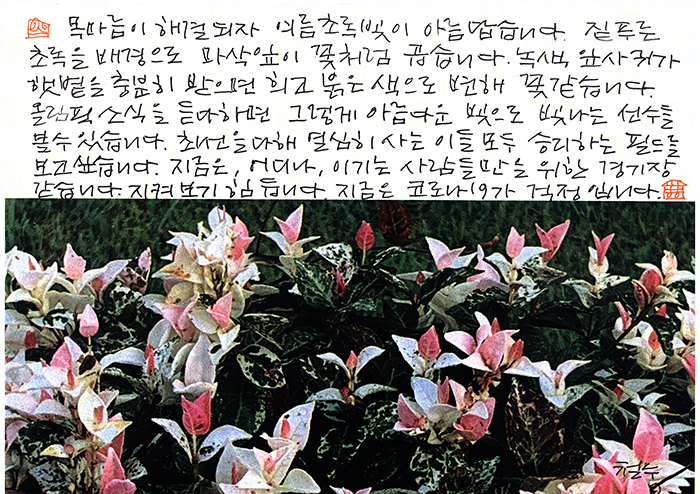 목마름이 해결되자 여름초록빛이 아름답습니다. 짙푸른
초록을 배경으로 마삭잎이 꽃처럼 곱습니다. 녹색 잎사귀가
햇볕을 충분히 받으면 희고 붉은 색으로 변해 꽃같습니다.
올림픽 소식을 듣다하면 그렇게 아름다운 빛으로 빛나는 선수들
볼수 있습니다. 최선을 다해 열심히 사는 이들 모두 승리하는 필드를
보고싶습니다. 지금은, 어디나, 이기는 사람들만을 위한 경기장
같습니다. 지켜보기 힘듭니다. 지금은 코로나19가 걱정입니다.
철수